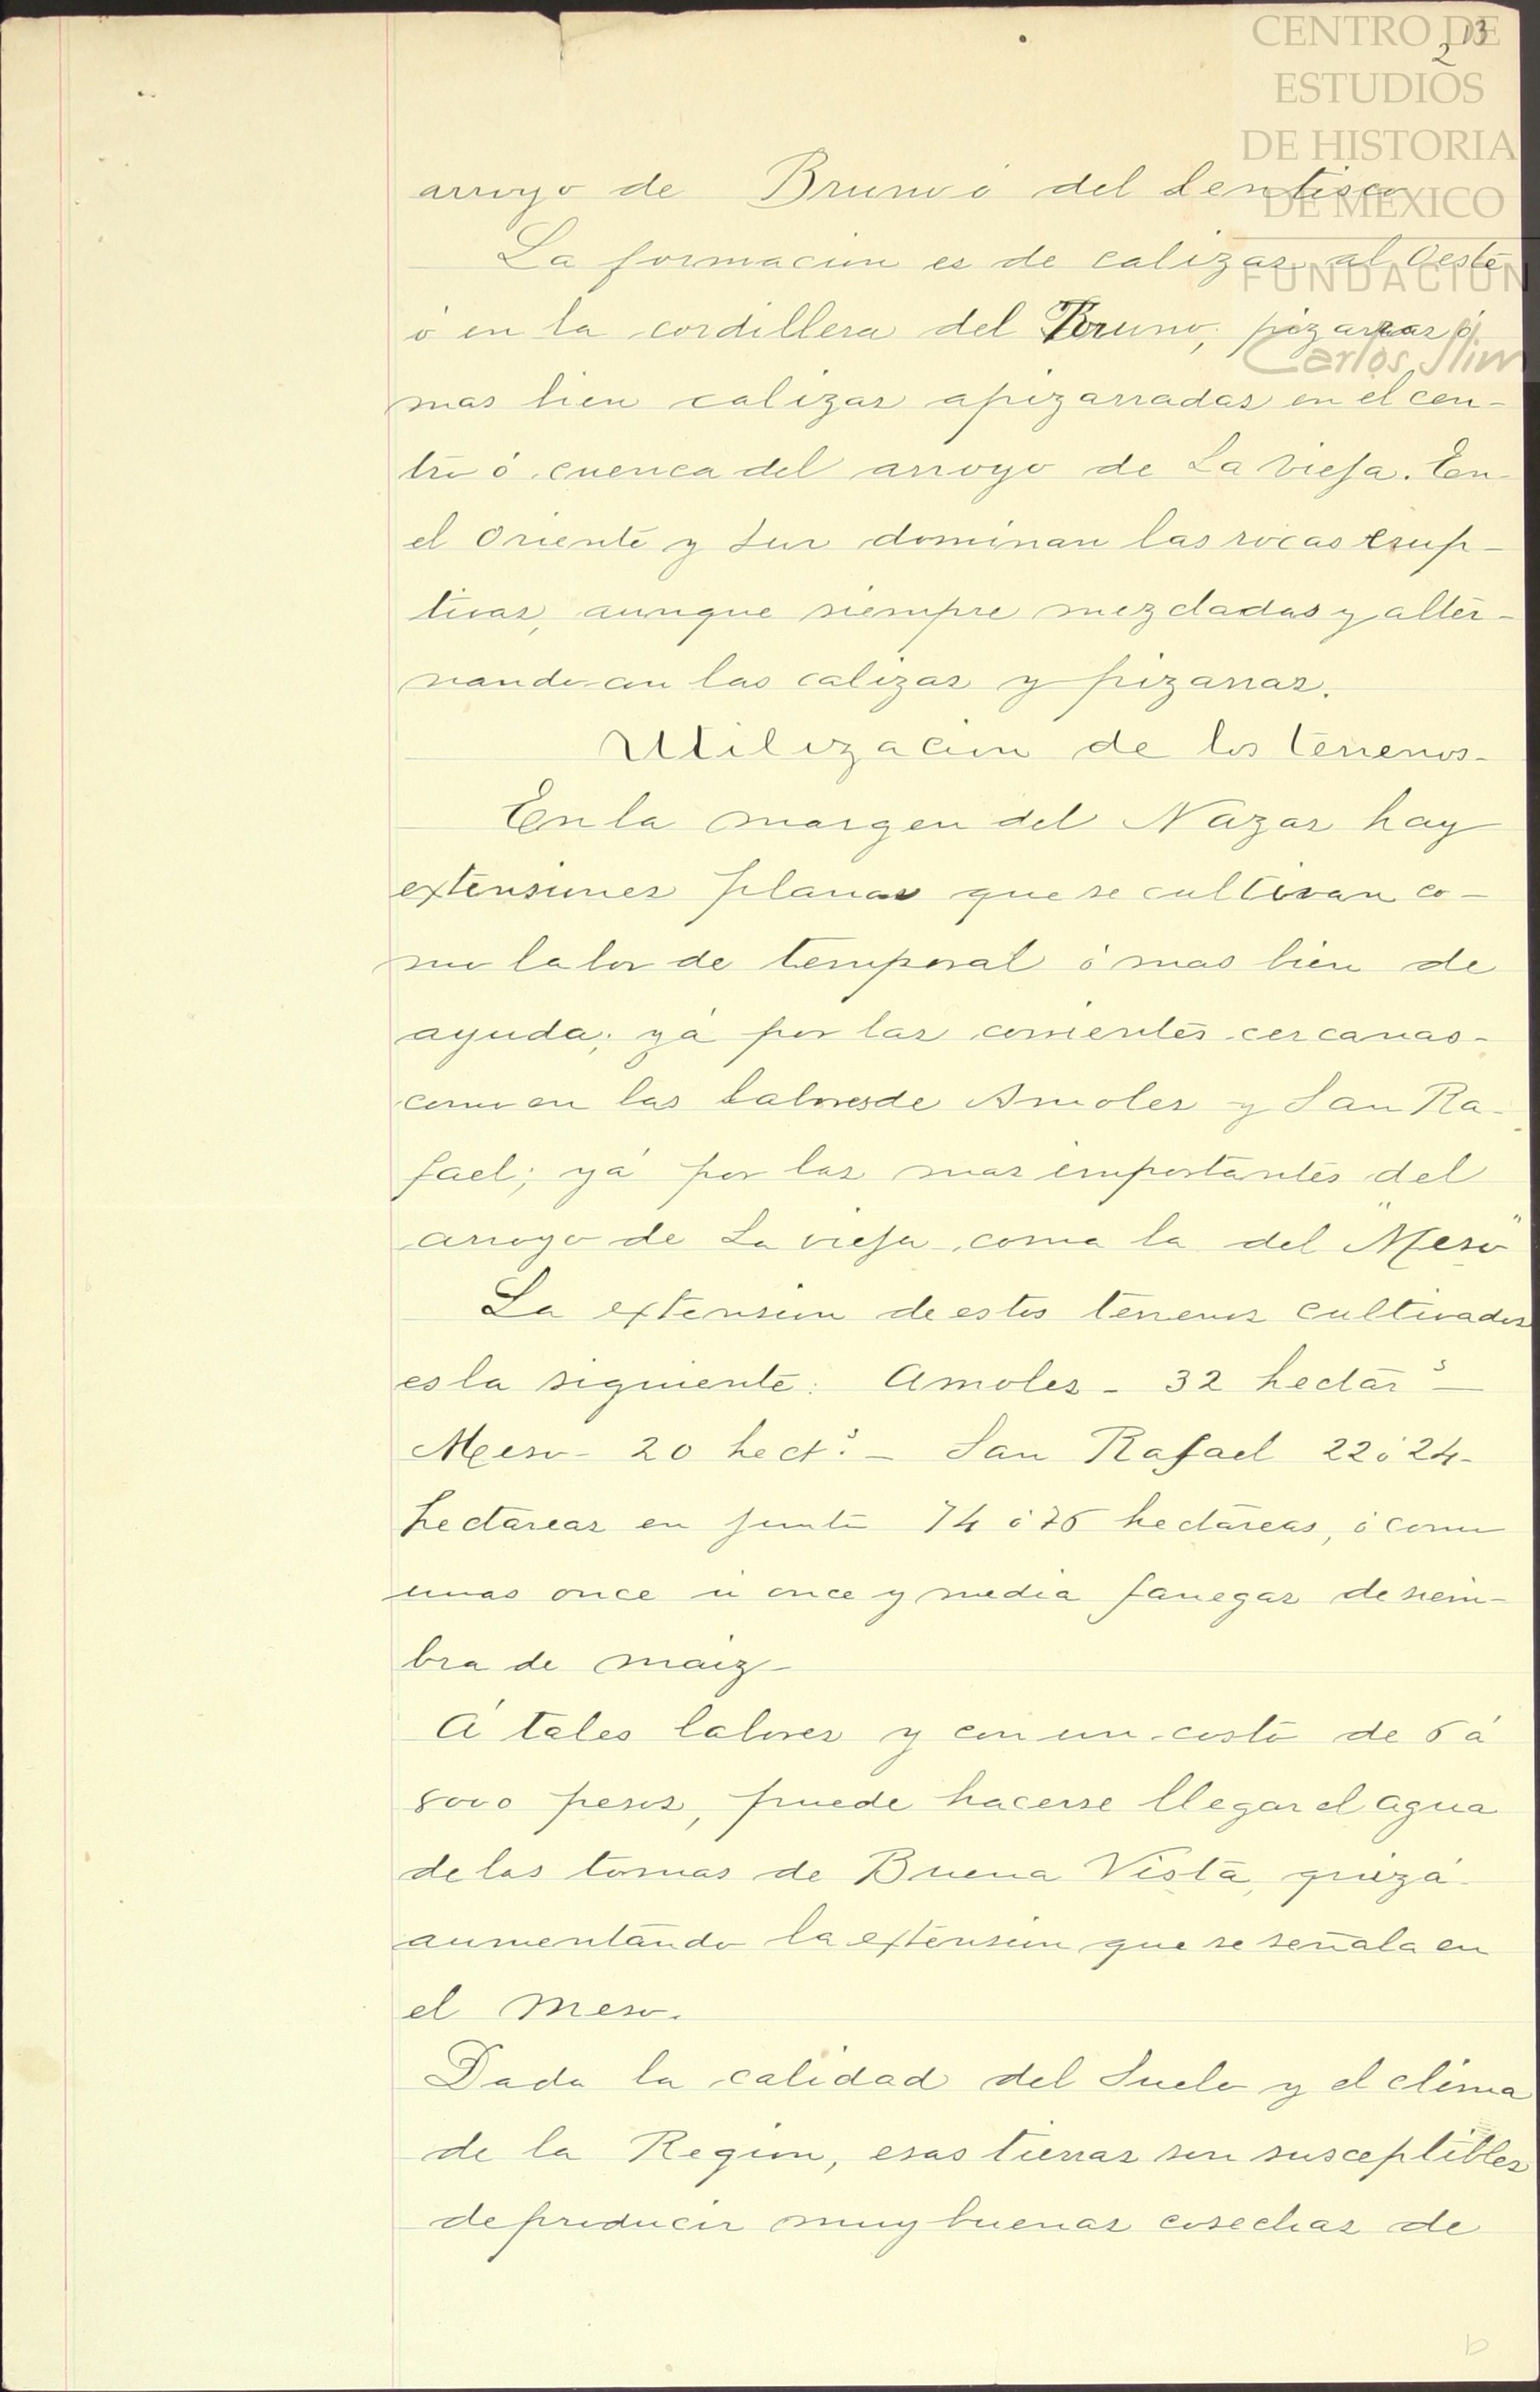 CENTRO DE
ESTUDIOS
DE HISTORIA
DE MEXICO
FUNDACIÓN
Carlos Slim
2 13
arroyo de Bruno ó del Lentisco
La formacion es de calizas al Oeste
ó en la cordillera del Bruno; pizarras ó
mas bien calizas apizarradas en el cen-
tro ó cuenca del arroyo de La Vieja. En
el Oriente y Sur dominan las rocas erup-
tivas, aunque siempre mezcladas y alter-
nando con las calizas y pizarras.
Utilizacion de los terrenos-
En la margen del Nazas hay
extensiones planas que se cultivan co-
mo labor de temporal ó mas bien de
ayuda; yá por las corrientes cercanas-
como en las labores de Amoles y San Ra-
fael; yá por las mas importantes del
arroyo de La vieja como la del "Meso"
La extension de estos terrenos cultivados
es la siguiente: Amoles - 32 hectár.s —
Meso - 20 hect.s — San Rafael 22 ó 24-
hectáreas en junto 74 ó 76 hectáreas, ó como
unas once ú once y media fanegas de siem-
bra de maiz-
Á tales labores y con un costo de 6 á
8000 pesos, puede hacerse llegar el agua
de las tomas de Buena Vista, quizá
aumentando la extension que se señala en
el Meso.
Dada la calidad del Suelo y el clima
de la Region, esas tierras son susceptibles
de producir muy buenas cosechas de